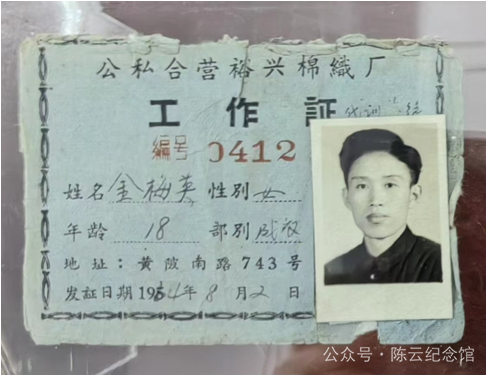 公私合营裕兴棉織厂
工作証
编号 0412
姓名 金梅英 性别 女
年龄 18 部别 成衣
地址：黄陂南路743号
发証日期 1954年8月2日
公众号·陈云纪念馆